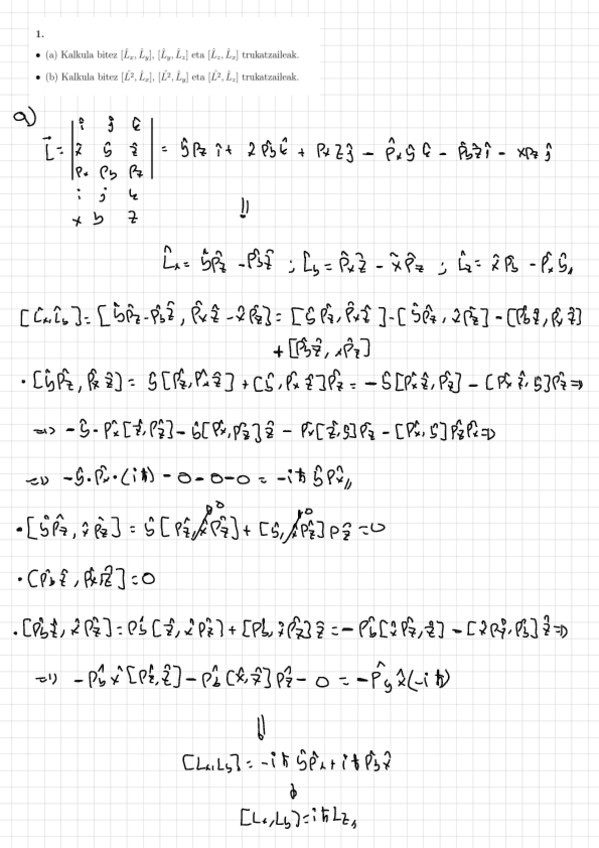 1.
• (a) Kalkula bitez [L̂ₓ, L̂_y], [L̂_y, L̂_z] eta [L̂_z, L̂ₓ] trukatzaileak.
• (b) Kalkula bitez [L̂², L̂ₓ], [L̂², L̂_y] eta [L̂², L̂_z] trukatzaileak.
a)
L⃗ = | i j k ; x̂ ŷ ẑ ; pₓ p_y p_z | = ŷp_z î + x̂p̂_y k̂ + pₓẑ ĵ - p̂ₓŷ k̂ - p̂_yẑ î - xp_z ĵ
i j k
x y z
⇓
L̂ₓ = ŷp̂_z - p̂_yẑ ; L̂_y = p̂ₓẑ - x̂p̂_z ; L̂_z = x̂p̂_y - p̂ₓŷ //
[L̂ₓ, L̂_y] = [ŷp̂_z - p̂_yẑ, p̂ₓẑ - x̂p̂_z] = [ŷp̂_z, p̂ₓẑ] - [ŷp̂_z, x̂p̂_z] - [p̂_yẑ, p̂ₓẑ]
+ [p̂_yẑ, xp̂_z]
· [ŷp̂_z, p̂ₓẑ] = ŷ[p̂_z, p̂ₓẑ] + [ŷ, p̂ₓẑ]p̂_z = -ŷ[p̂ₓẑ, p̂_z] - [p̂ₓẑ, ŷ]p̂_z ⇒
⇒ -ŷ·p̂ₓ[ẑ, p̂_z] - ŷ[p̂ₓ, p̂_z]ẑ - p̂ₓ[ẑ, ŷ]p̂_z - [p̂ₓ, ŷ]p̂_zp̂ₓ ⇒
⇒ -ŷ·p̂ₓ·(iħ) - 0 - 0 - 0 = -iħ ŷp̂ₓ //
· [ŷp̂_z, x̂p̂_z] = ŷ[p̂_z, x̂p̂_z] 0 + [ŷ, x̂p̂_z] 0 p̂_z = 0
· [p̂_yẑ, p̂ₓẑ] = 0
· [p̂_yẑ, x̂p̂_z] = p̂_y[ẑ, x̂p̂_z] + [p̂_y, x̂p̂_z]ẑ = -p̂_y[x̂p̂_z, ẑ] - [x̂p̂_z, p̂_y]ẑ ⇒
⇒ -p̂_yx̂[p̂_z, ẑ] - p̂_y[x̂, ẑ]p̂_z - 0 = -p̂_yx̂(-iħ)
⇓
[Lₓ, L_y] = -iħ ŷp̂ₓ + iħ p̂_yx̂
↓
[Lₓ, L_y] = iħL_z //